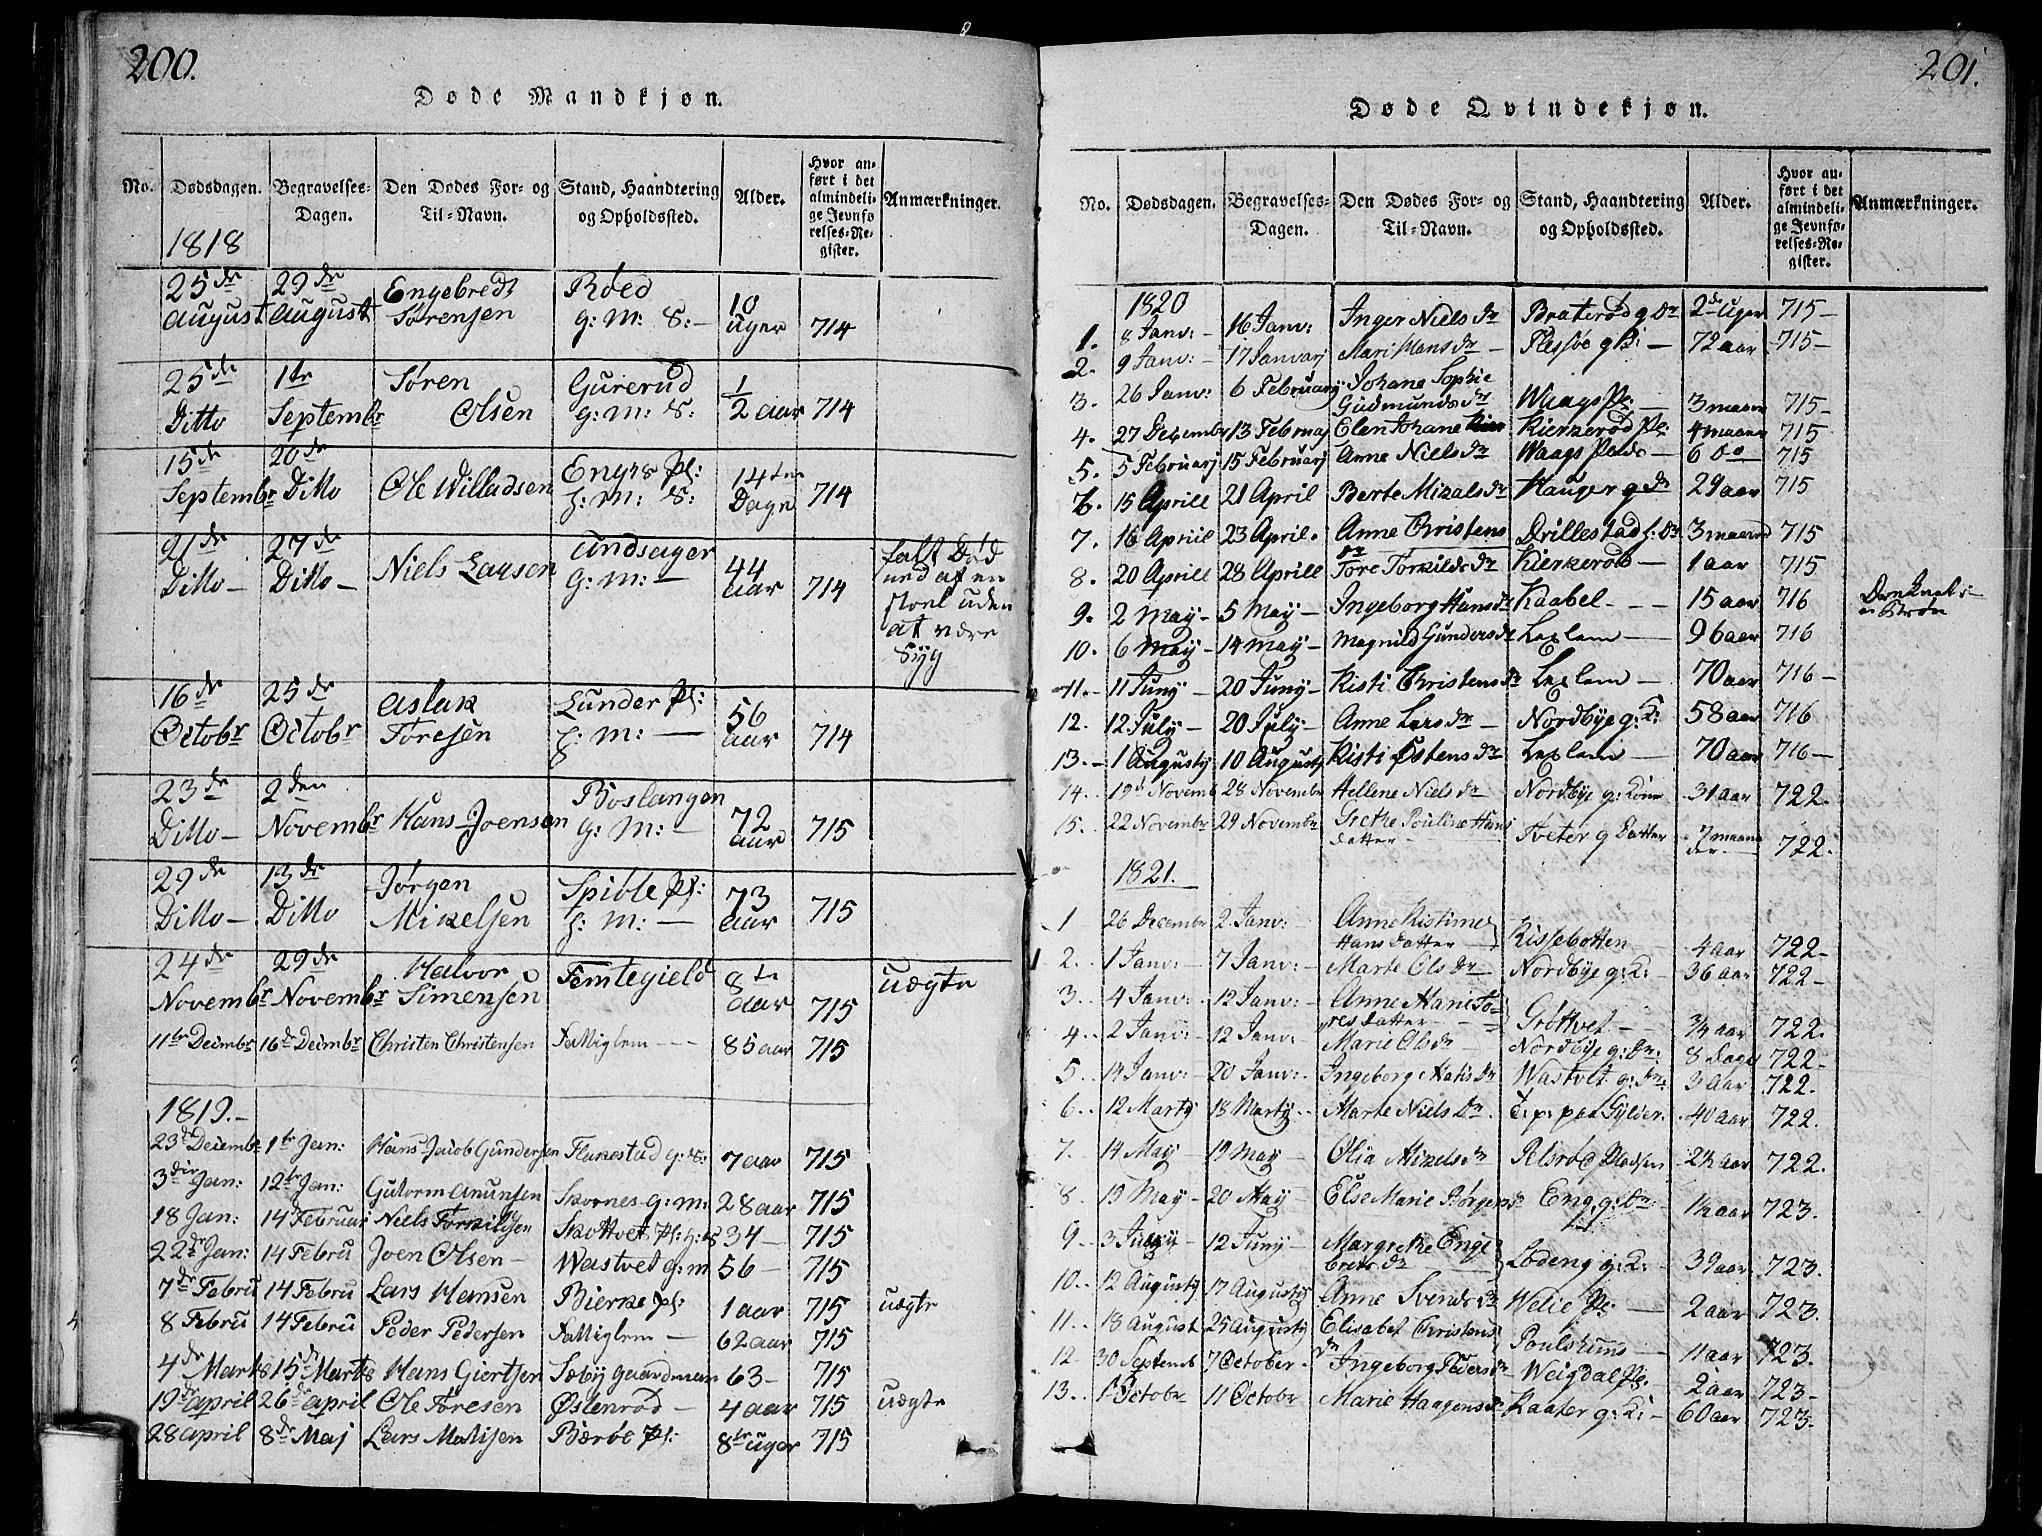 200.
Døde Mandkjøn.
No. Dødsdagen. Begravelses-Dagen. Den Dødes For- og Til-Navn. Stand, Haandtering og Opholdssted. Alder. Hvor anført i det almindelige Jevnførelses-Register. Anmærkninger.
1818
25de august 29de august Engebredt Sørensen Røed g: M: S:- 10 uger 714
25de Ditto 1te Septembr Søren Olsen Gurerud g: M: S: 1/2 aar 714
15de Septembr 20de Ditto Ole Willadsen Engns pl: h: M: S: 14ten Dage 714
21de Ditto- 27de Ditto- Niels Larsen undsager G: M:- 44 aar 714 falt Død ned af en stoel uden at være Syg
16de Octobr 25de Octobr aslak Toresen Lunder Pl: h: M:- 56 aar 714
23de Ditto- 2den Novembr Hans Joensen Boslangen G: M:- 72 aar 715
29de Ditto- 13de Ditto Jørgen Mikelsen Spidle pl: h: M:- 73 aar 715
24de Novembr 29de Novembr Halvor Simensen Femtegield 8te aar 715 uægte
11te Deimbr 16de Deimbr Christen Christensen Fattiglem --- 85 aar 715
1819.-
23de Deimbr 1te Jan: Hans Jacob Gundersen Flakestad g: S: 7 aar 715
3die Jan: 12te Jan: Gutorm anunsen Skovnes g: m: 28 aar 715
18 Jan: 14 Februar Niels Torkildsen Skottvet Pl: h: 34- 715
22de Jan: 14 Febru Joen Olsen- Wastvet g: m 56- 715
7de Febru 14 Febru Lars Hansen Bierke pl: 1 aar 715 uægte
8 Febru 14 Febru Peder Pedersen Fattiglem- 62 aar 715
4de Marts 15de Marts Hans Giertsen Sæby gaardman 63- 715
19de april 26de april Ole Toresen Østenrød- 4 aar 715 uægte
28 april 8de Maj Lars Matisen Bærbye Pl: 8te uger 715
201.
Døde Qvindekjøn.
No. Dødsdagen. Begravelses-Dagen. Den Dødes For- og Til-Navn. Stand, Haandtering og Opholdssted. Alder. Hvor anført i det almindelige Jevnførelses-Register. Anmærkninger.
1820
1. 8 Janv:- 16 Janv: Inger Niels Dr Braterød g Dr 2de Uger 715-
2. 9 Janv:- 17 Januarj Mari Hans Dr- 72 aar 715-
3. 26 Janv: 6 Februarij Johane Sophie Gudmunds Dr Waags Pl:- 3 maaned 715-
4. 27 Desember 13 Februarj Elen Johane Kierkerød Pl: 4 maaned 715
5. 5 Februarj 15 Februarj Anne Niels Dr Waags Pladse- 6 Do 715
6. 15 Aprill 21 April Berte Mikals Dr Hauger g Dr 29 aar 715
7. 16 Apriil 23 April. Anne Christens Dr Drillestad h: Dr 3 maaned 715
8. 20 Aprill 28 Aprill Tore Torkilds Dr Kierkerød- 1 aar 715
9. 2 May- 5 May- Ingeborg Hans Dr Kaabel-- 15 aar 716
10. 6 May- 14 May- Magnild Gunders Dr Leglem- 96 aar 716
11.- 11 Juny- 20 Juny- Kisti Christens Dr Leglem- 70 aar 716-
12. 12 July- 20 July- Anne Lars Dr- Nordbye g: K: 58 aar 716
13.- 1 Augusty 10 Augusty Kisti Østens Dr Leglem- 70 aar 716-
14. 19d Novemb 28 Novembr Hellene Niels Dr Nordbye g: Kone 31 aar 722.
15. 22 Novembr 29 Novembr Grethe Pouline Hans datter- Tveter g Datter 7 maaneder- 722.
1821.
1 26 Decembr 2 Janv: Anne Kistine Hans Datter Kissebotten- 4 aar 722-
2. 1 Janv: 7 Janv: Marte Ols Dr Nordbye g: K: 36 aar 722-
3. 4 Janv: 12 Janv: Anne Marie Toresdatter-- Grøttvet- 3/4 aar 722.
4. 2 Janv: 12 Janv: Marie Ols Dr Nordbye g: Dr: 8 Dage 722.
5. 14 Janv: 20 Janv: Ingeborg Matis Dr Wastvet g: Dr: 3 aar 722.
6. 12 Marty 18 Marty.. Marte Niels Dr. 40 aar 722.
7. 14 May 19 May- Olia Mikels Dr Pladsen 2 1/2 aar 722.
8. 13 May- 20 May- Else Marie Børgens Dr Eng g: Dr: 1 1/2 aar 723.
9. 3 Juny- 12 Juny- Margrethe Engebrets Dr Lødeng g: K:- 39 aar 723.
10. 12 Augusty 17 Augusty Anne Svends Dr Welie Pl:- 2 aar 723.
11. 18 August 25 Augusty Elisabet Christens Dr Poulsrums- 11 aar 723.
12. 30 Septemb 7 October. Ingeborg Peders Dr Weigdal Pl: 2 aar 723-
13. 1 Octobr 11 Octobr Marie Haagens Dr Kaater g: K:- 60 aar 723.